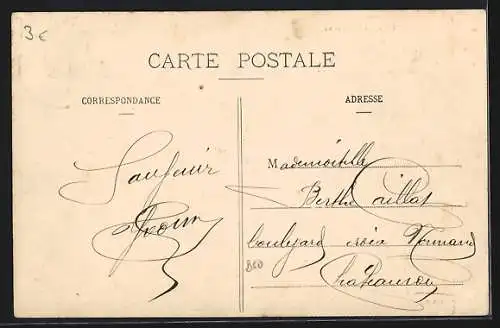 3€
CARTE POSTALE
CORRESPONDANCE
ADRESSE
Souvenir
Yvonne
Mademoiselle
Berthe Caillat
boulevard croix Normand
Châteauroux